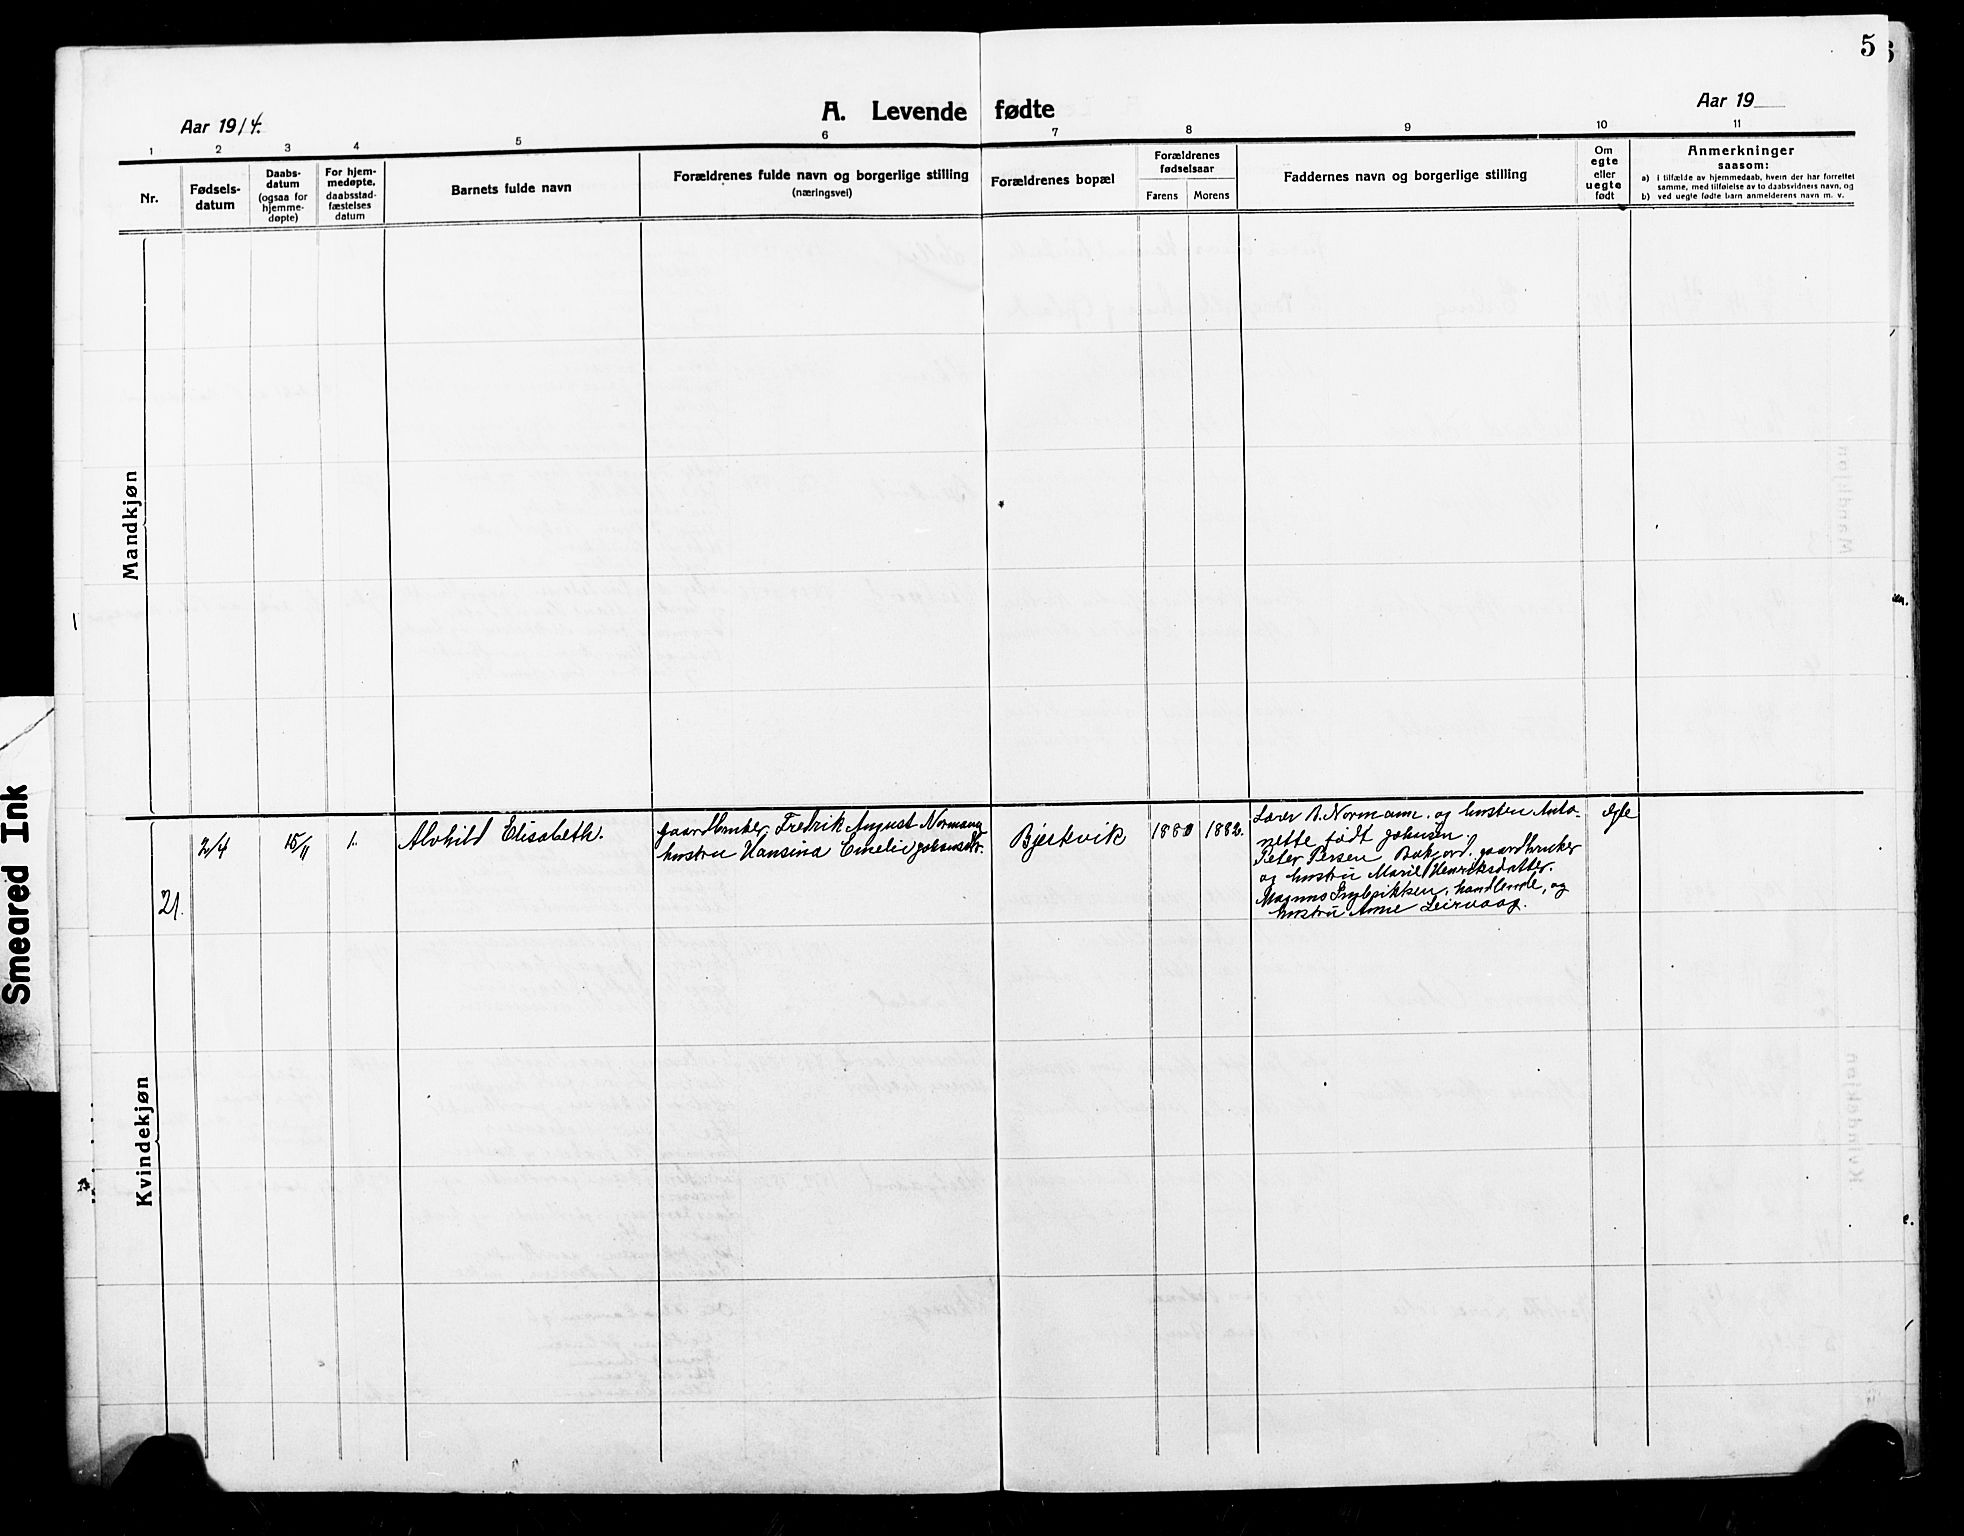 5
Aar 1914.
A. Levende fødte
Aar 19
1 2 3 4 5 6 7 8 9 10 11
Nr.
Fødsels-
datum
Daabs-
datum
(ogsaa for
hjemme-
døpte)
For hjem-
medøpte,
daabsstad-
fæstelses
datum
Barnets fulde navn
Forældrenes fulde navn og borgerlige stilling
(næringsvei)
Forældrenes bopæl
Forældrenes
fødselsaar
Farens Morens
Faddernes navn og borgerlige stilling
Om
egte
eller
uegte
født
Anmerkninger
saasom:
a) i tilfælde av hjemmedaab, hvem der har forrettet
samme, med tilføielse av to daabsvidners navn, og
b) ved uegte fødte barn anmelderens navn m. v.
Mandkjøn
Kvindekjøn
21.
2/4
15/11
1.
Alvhild Elisabeth.
gaardbruker Fredrik August Normann
hustru Hansina Emelie
Bjerkvik
1880
1882.
Lærer A. Normann og hustru Anto-
nette født Johnsen.
Peter Persen gaardbruker
og hustru Marie Henriksdatter.
Magnus handlende, og
hustru Anne Leirvaag.
egte
Smeared Ink